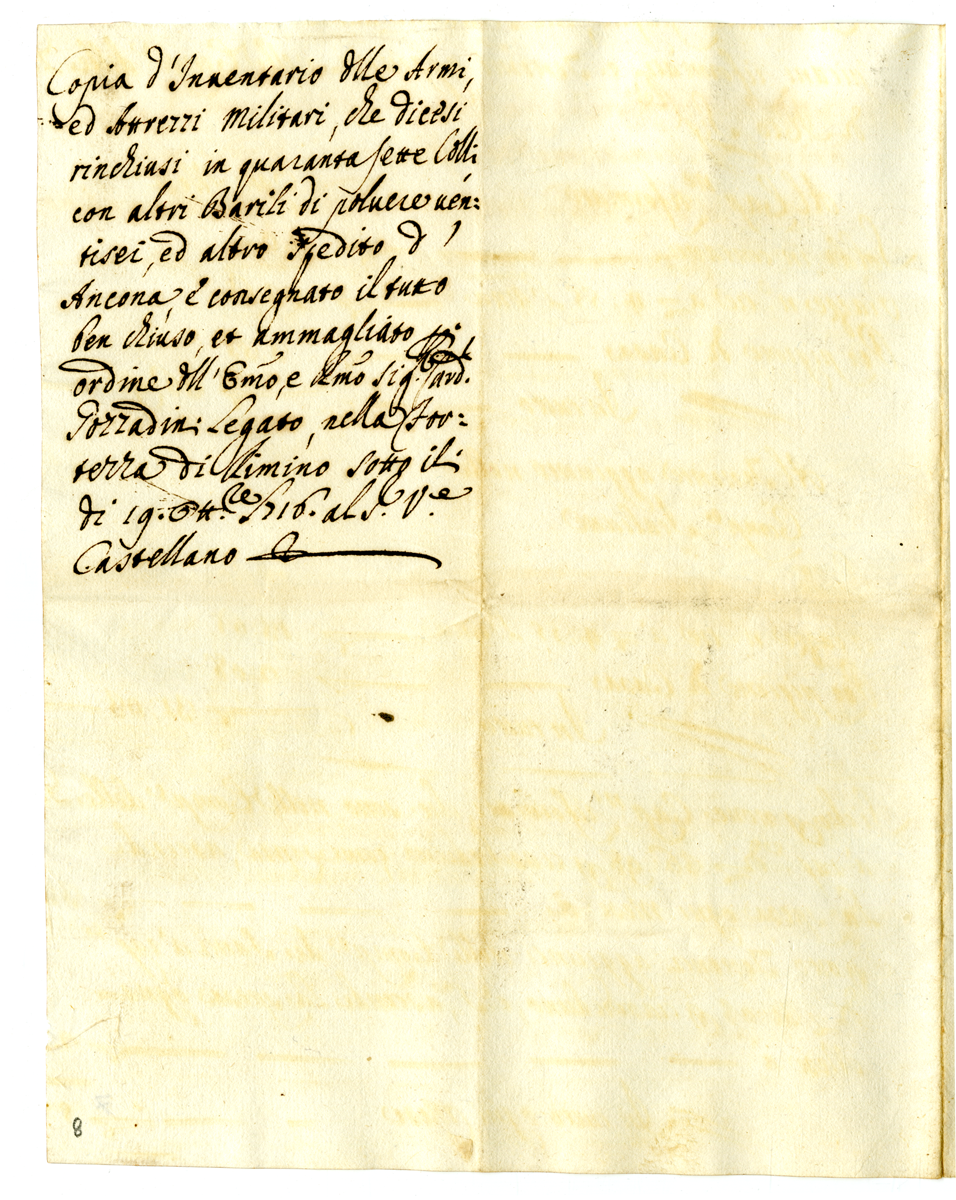 Copia d'Inuentario dlle Armi,
ed Attrezzi Militari, che dicesi
rinchiusi in quaranta sette Colli
con altri Barili di poluere uen:
tisei, ed altro spedito d'
Ancona, e consegnato il tutto
ben chiuso, et ammagliato
ordine dll' Emo, e Rmo Sig. Card.
Gozzadini Legato, nella For:
tezza di Rimino sotto il
di 19. Ottre 1716. al S. V.e
Castellano
8